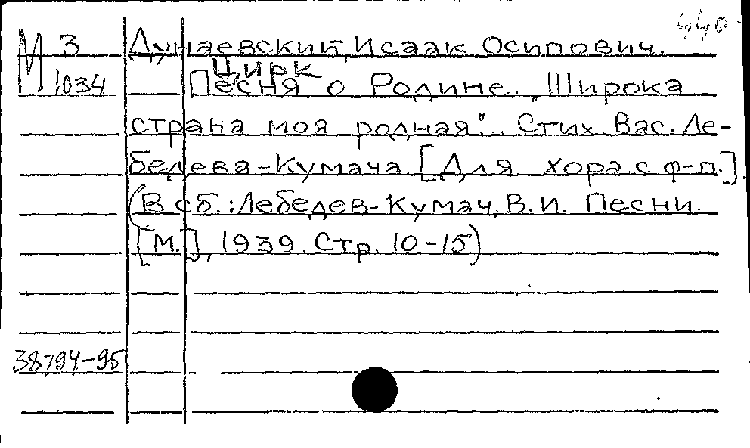 М 3 Дунаевский, Исаак Осипович.
Цирк
1034 Песня о Родине. „Широка
страна моя родная". Стих. Вас. Ле-
бедева-Кумача [Для хора с ф-п.].
(В сб.: Лебедев-Кумач, В.И. Песни.
[М.], 1939. Стр. 10-15)
38794-95